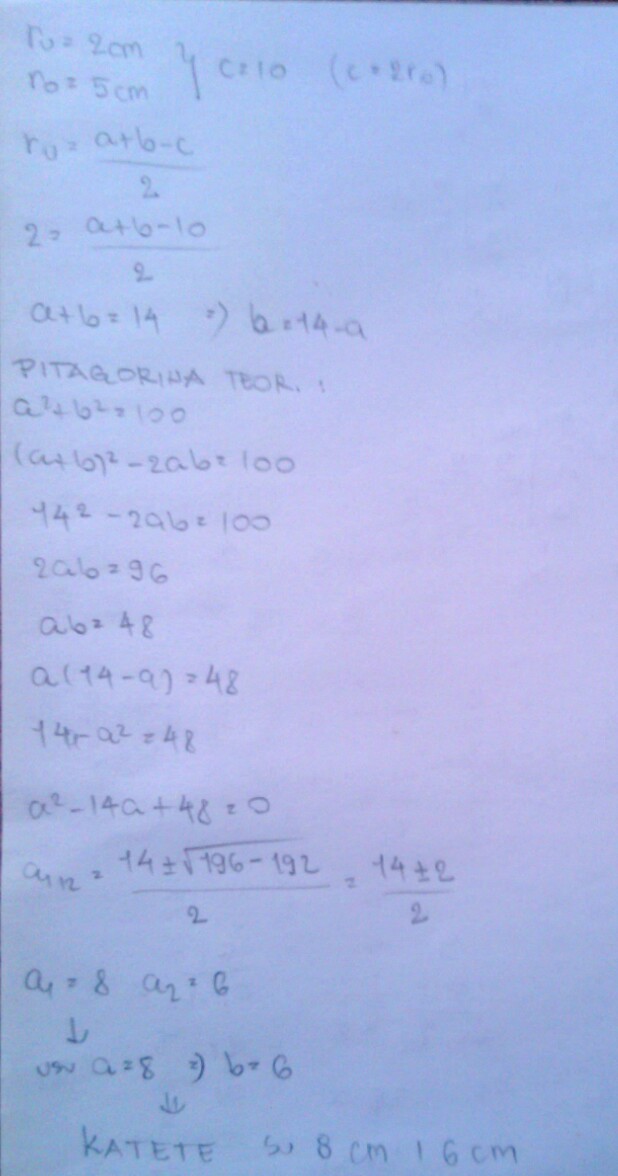 ru = 2cm
ro = 5cm } c=10 (c=2ro)
ru = (a+b-c)/2
2 = (a+b-10)/2
a+b=14 => b=14-a
PITAGORINA TEOR. :
a²+b²=100
(a+b)²-2ab=100
14²-2ab=100
2ab=96
ab=48
a(14-a)=48
14-a²=48
a²-14a+48=0
a1,2 = (14±√196-192)/2 = (14±2)/2
a1=8 a2=6
↓
a=8 => b=6
⇓
KATETE SU 8 cm i 6 cm